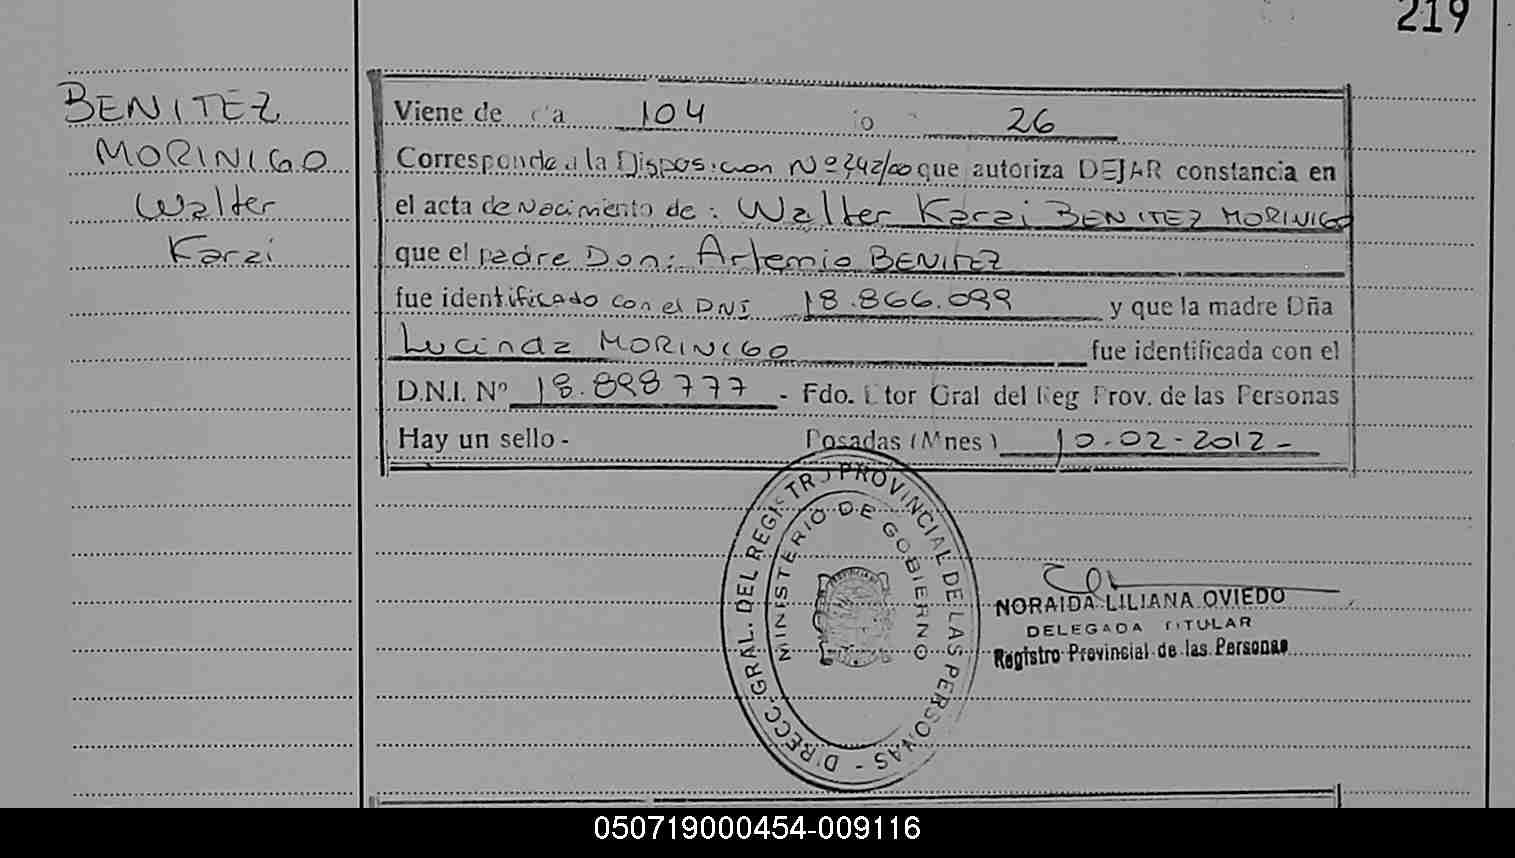 219
BENITEZ
MORINIGO
Walter
Karai
Viene de 104 26
Corresponde a la Disposicion Nº 242/00 que autoriza DEJAR constancia en
el acta de Nacimiento de: Walter Karai BENITEZ MORINIGO
que el padre Don: Artemio BENITEZ
fue identificado con el DNI 18.866.099 y que la madre Dña
Lucinda MORINIGO fue identificada con el
D.N.I. Nº 18.898777 - Fdo. Dtor Gral del Reg Prov. de las Personas
Hay un sello - Posadas (Mnes) 10-02-2012-
DIRECC. GRAL. DEL REGISTRO PROVINCIAL DE LAS PERSONAS -
MINISTERIO DE GOBIERNO
NORAIDA LILIANA OVIEDO
DELEGADA TITULAR
Registro Provincial de las Personas
050719000454-009116